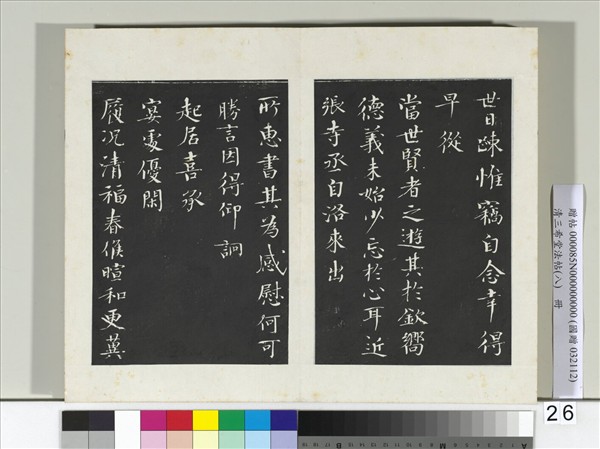 世日踈惟竊自念幸得
早從
當世賢者之遊其於欽嚮
德義未始少忘於心耳近
張寺丞自洛來出
所惠書其為感慰何可
勝言因得仰詗
起居喜承
宴處優閑
履况清福春候暄和更冀
贈帖 000085N000000000 (國贈 032112)
清三希堂法帖(八) 冊
26